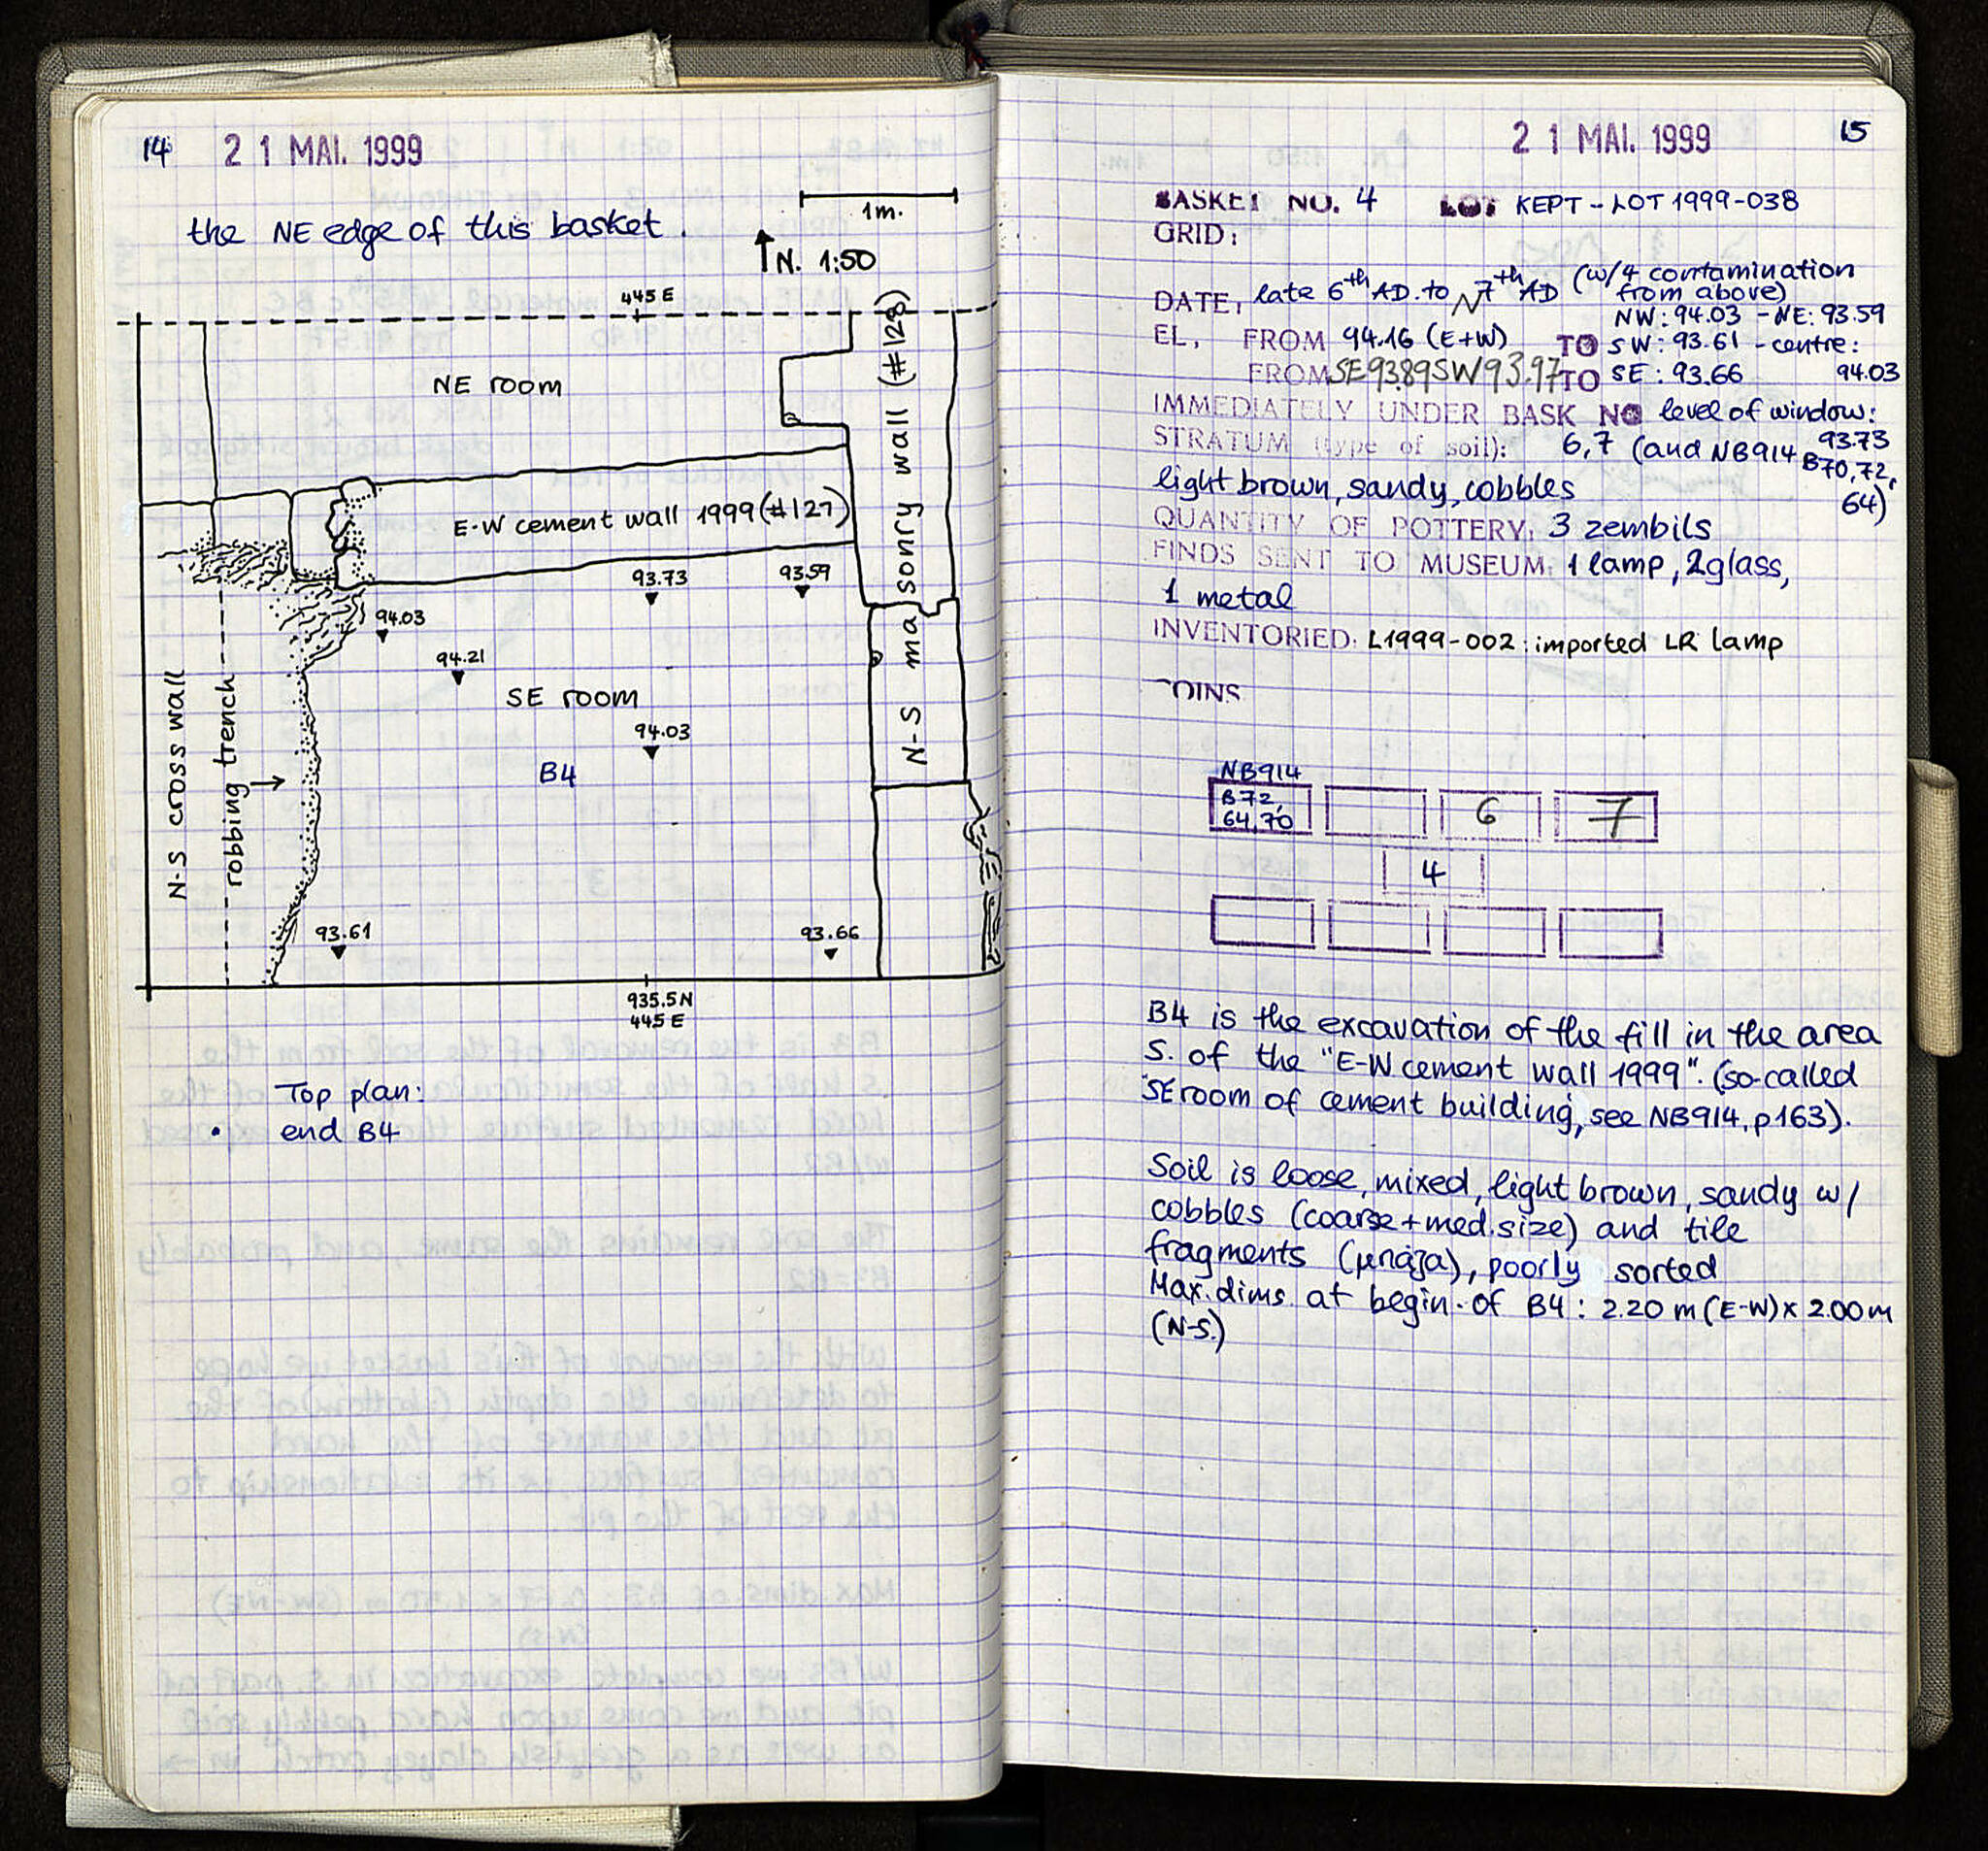 14
21 MAI. 1999
the NE edge of this basket.
1m.
N. 1:50
445 E
NE room
N-S masonry wall (#128)
E-W cement wall 1999 (#127)
93.73
93.59
94.03
94.21
SE room
94.03
B4
N-S cross wall
robbing trench
93.61
93.66
935.5N
445 E
Top plan:
end B4
21 MAI. 1999
15
BASKET NO. 4 LOT KEPT - LOT 1999-038
GRID:
DATE, late 6th AD. to 7th AD (w/4 contamination
from above)
NW: 94.03 - NE: 93.59
EL, FROM 94.16 (E+W) TO SW: 93.61 - centre:
FROM SE93.89 SW93.97 TO SE: 93.66 94.03
IMMEDIATELY UNDER BASK NO level of window:
93.73
STRATUM (type of soil): 6,7 (and NB914 B70,72,
64)
light brown, sandy, cobbles
QUANTITY OF POTTERY: 3 zembils
FINDS SENT TO MUSEUM: 1 lamp, 2 glass,
1 metal
INVENTORIED: L1999-002: imported LR lamp
COINS
NB914
B72,
64,70
6
7
4
B4 is the excavation of the fill in the area
S. of the "E-W cement wall 1999". (so-called
SE room of cement building, see NB914, p163).
Soil is loose, mixed, light brown, sandy w/
cobbles (coarse + med. size) and tile
fragments (μπάζα), poorly sorted
Max. dims. at begin. of B4: 2.20 m (E-W) x 2.00 m
(N-S.)